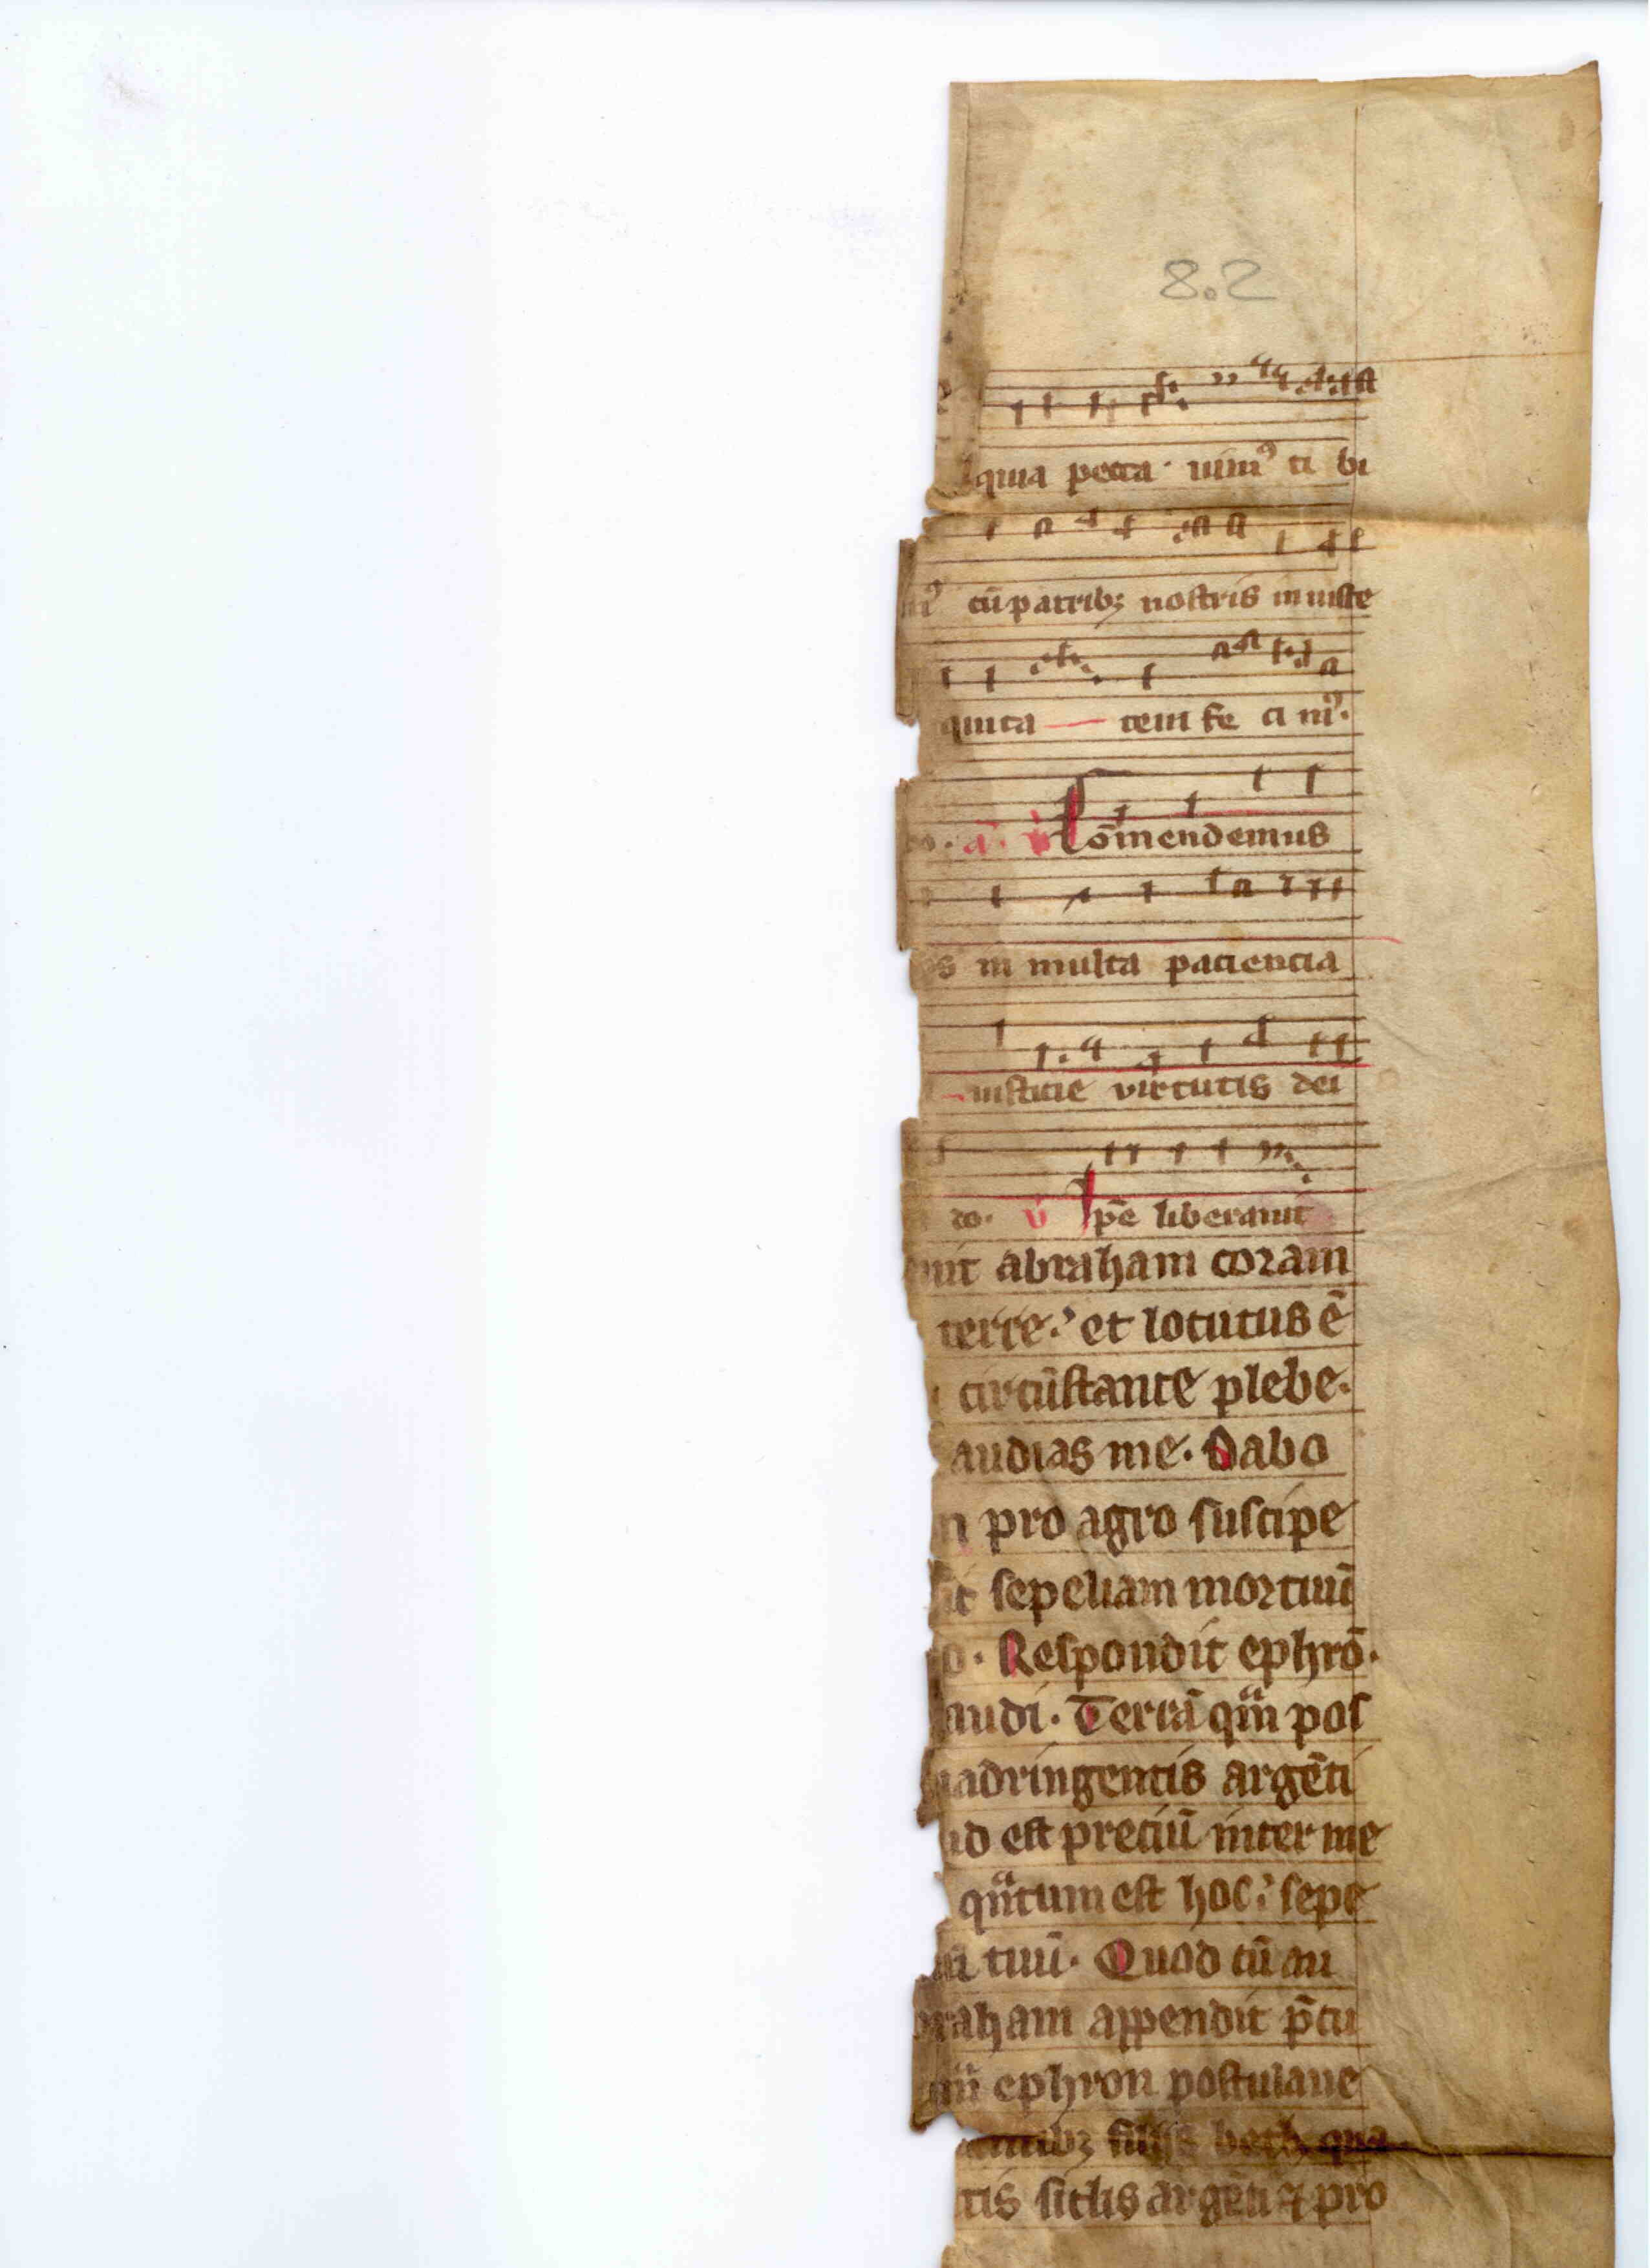 8.2
quia pecca uimꝰ ti bi
cū patribꝫ nostris iniuste
quita tem fe ci mꝰ.
a. v Cōmendemus
s in multa paciencia
iusticie virtutis dei
do. v Ip̄e liberauit
uit abraham coram
terre. et locutus ē
circūstante plebe.
audias me. Dabo
pro agro suscipe
sic sepeliam mortuū
o. Respondit ephrō.
audi. Terrā quā pos
uadringentis argēti
id est preciū inter me
quātum est hoc. sepe
tuū. Quod cū au
braham appendit p̄cu
ephron postulaue
filijs heth qua
tis siclis argēti ⁊ pro